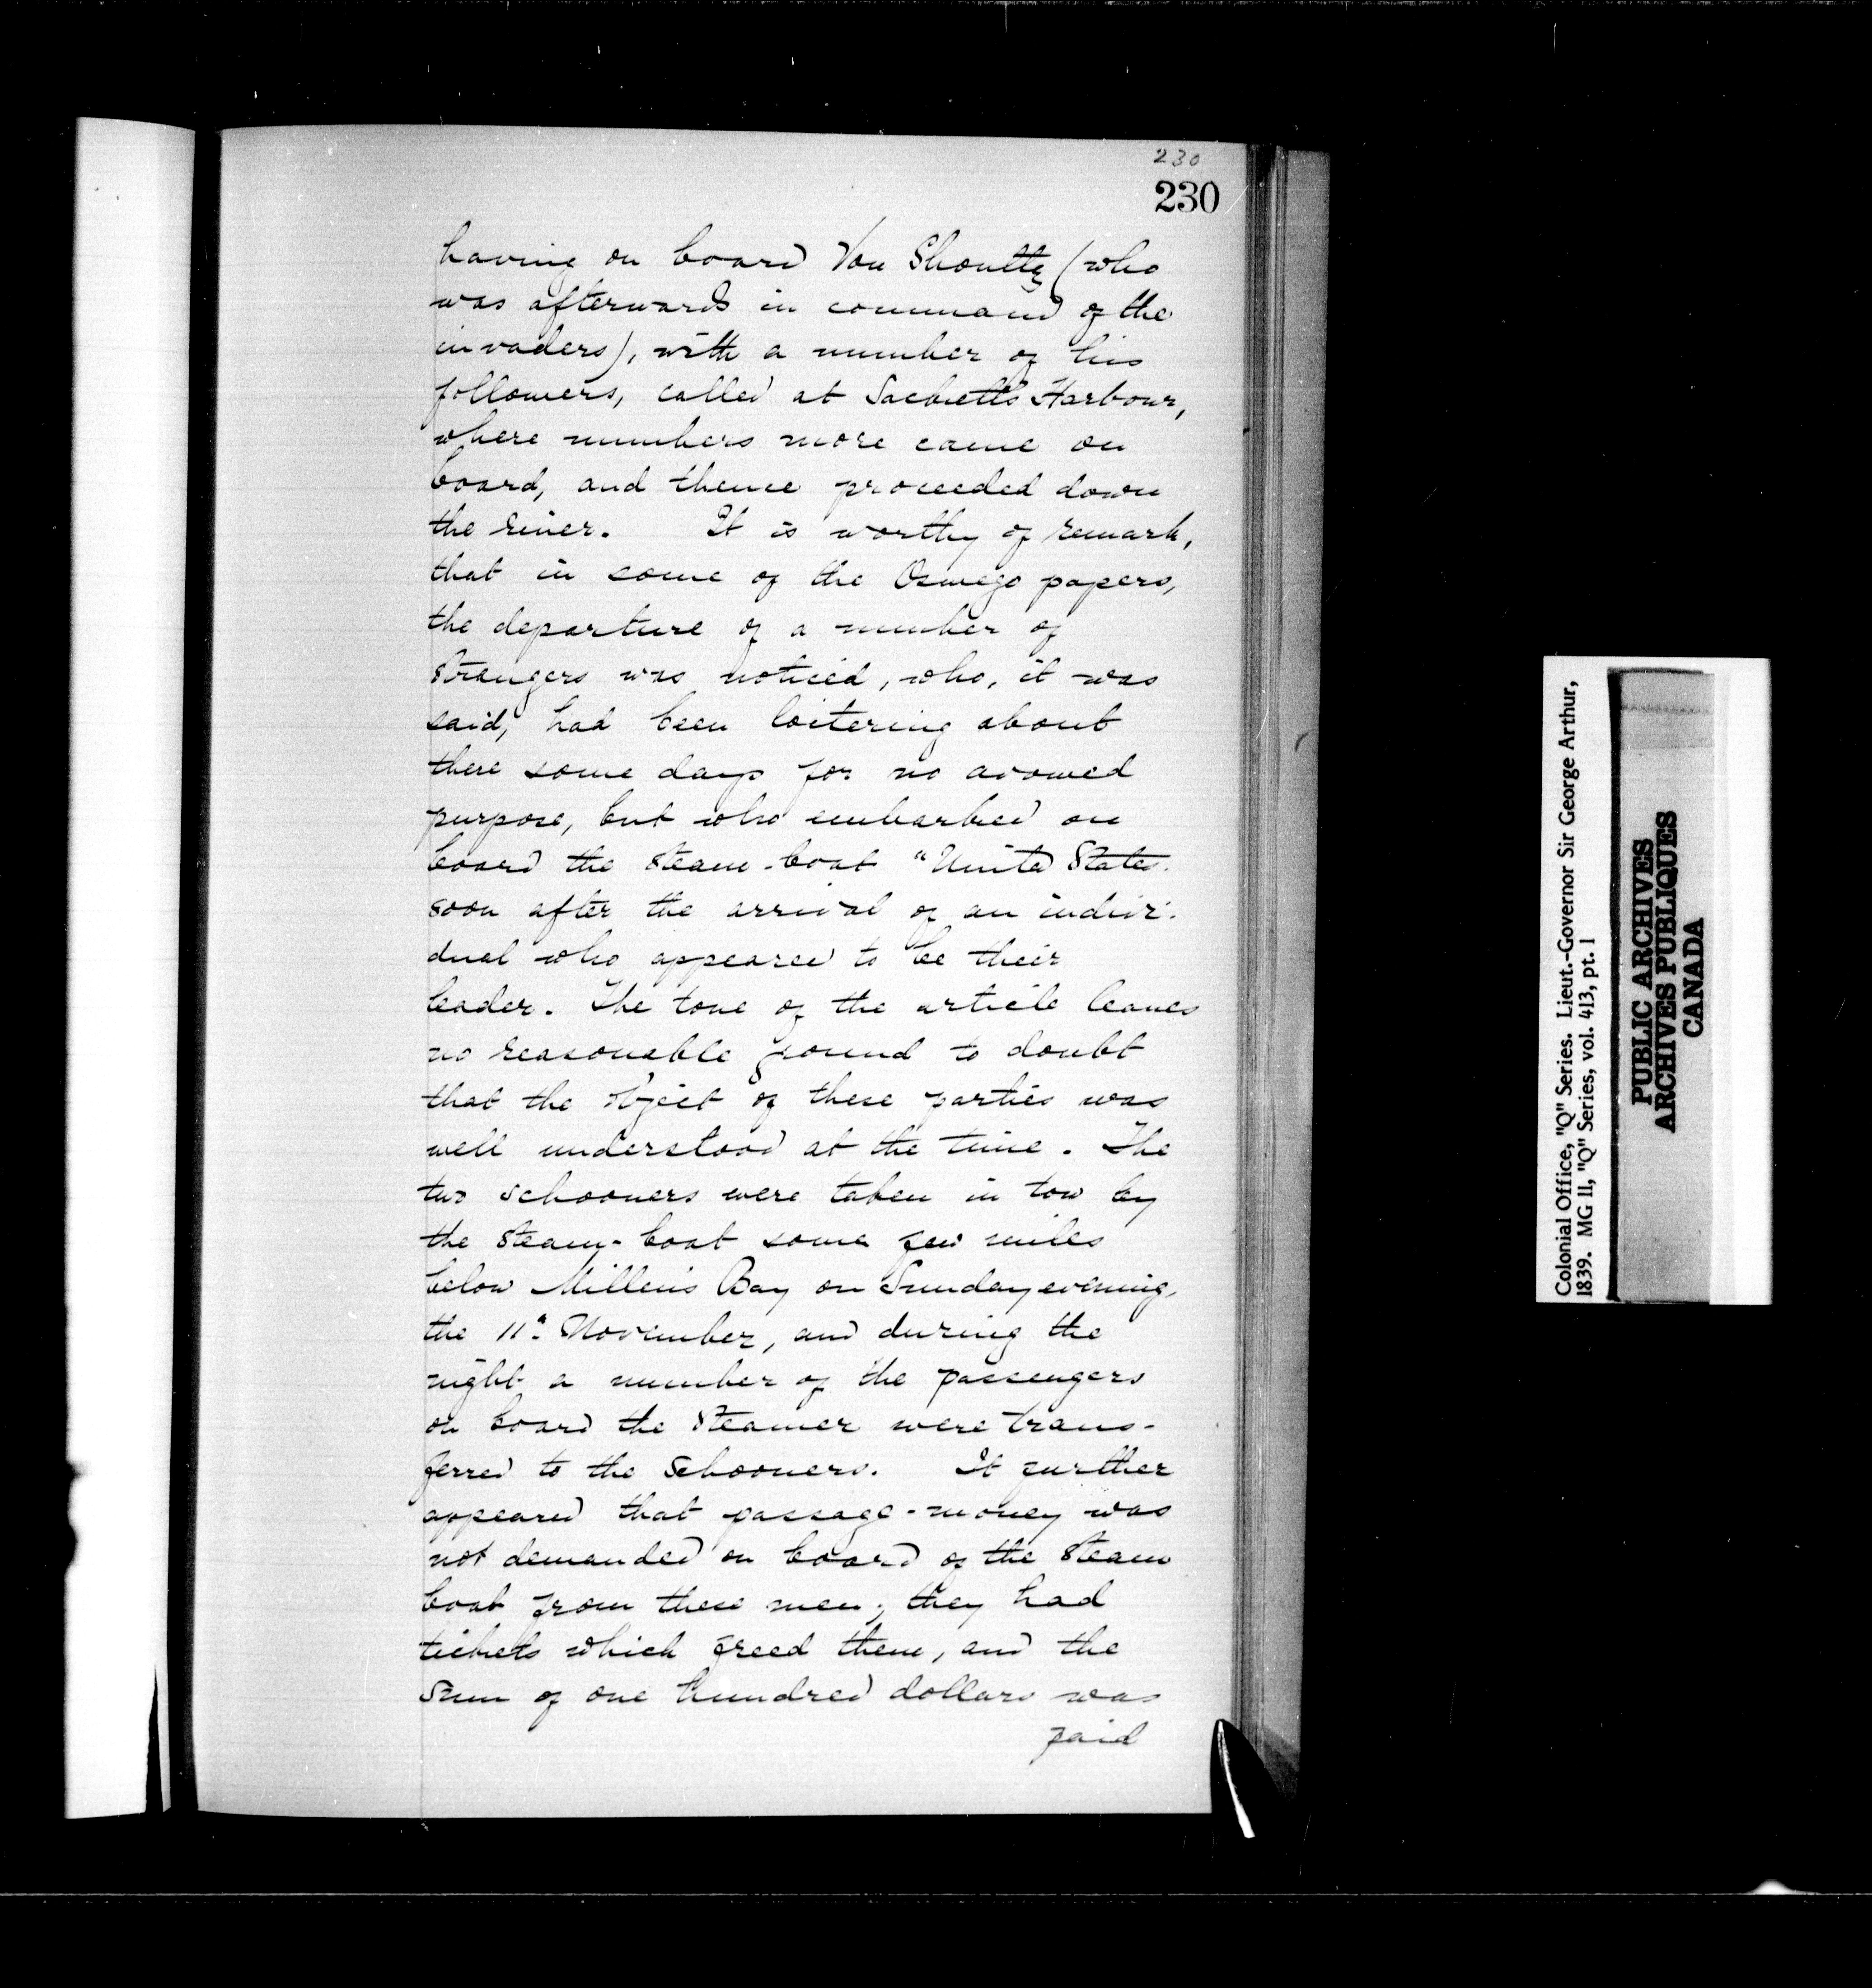 230
230
having on board Von Shoultz (who
was afterwards in command of the
invaders), with a number of his
followers, called at Sackett's Harbour,
where numbers more came on
board, and thence proceeded down
the river. It is worthy of remark,
that in some of the Oswego papers,
the departure of a number of
strangers was noticed, who, it was
said, had been loitering about
there some days for no avowed
purpose, but who embarked on
board the steam-boat "United States
soon after the arrival of an indivi-
dual who appeared to be their
leader. The tone of the article leaves
no reasonable ground to doubt
that the object of these parties was
well understood at the time. The
two schooners were taken in tow by
the steam-boat some few miles
below Millen's Bay on Sunday evening,
the 11th November, and during the
night a number of the passengers
on board the steamer were trans-
ferred to the schooners. It further
appeared that passage-money was
not demanded on board of the steam
boat from these men; they had
tickets which freed them, and the
sum of one hundred dollars was
paid
Colonial Office, "Q" Series. Lieut.-Governor Sir George Arthur,
1839. MG 11, "Q" Series, vol. 413, pt. 1
PUBLIC ARCHIVES
ARCHIVES PUBLIQUES
CANADA